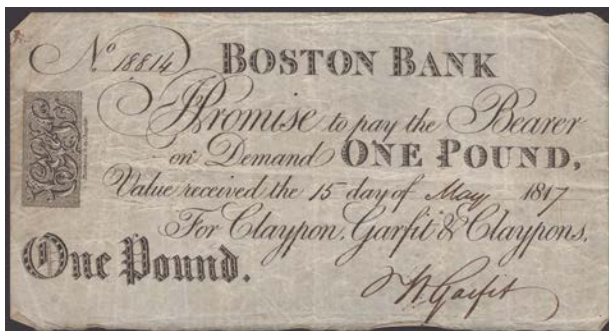 No 18814 BOSTON BANK
I Promise to pay the Bearer
on Demand ONE POUND,
Value received the 15 day of May 1817
For Claypon, Garfit & Claypons,
One Pound.
W Garfit